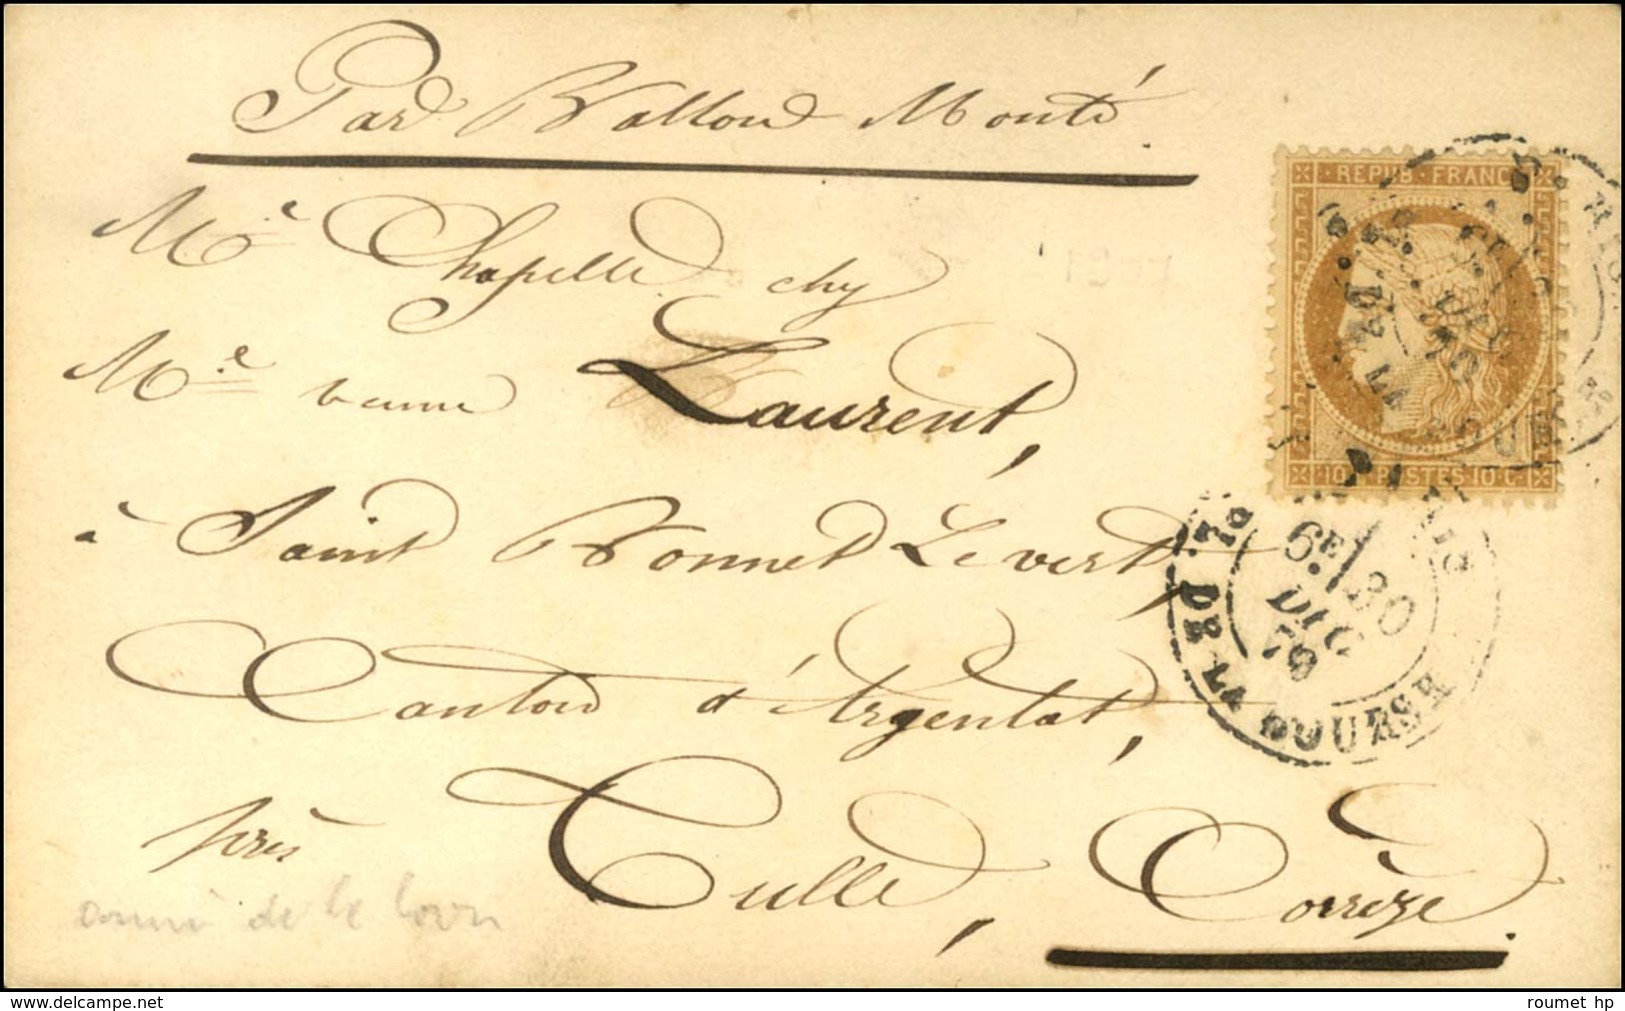 Par Ballon Monté.
Mr Chapelle chy
Me veuve Laurent,
à Saint Bonnet Le vert,
Canton d'Argentat,
près Tulle, Corrèze.
REPUB. FRANC.
10 C. POSTES 10 C.
PL. DE LA BOURSE
6E 30
DEC.
70
delcampe.net
roumet hp